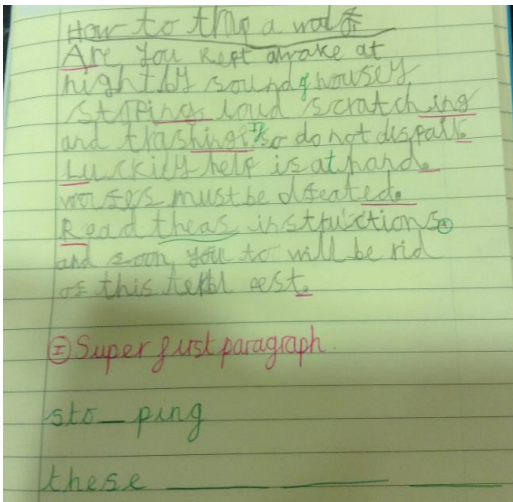 How to trap a wolf
Are you kept awake at
night by sound of housey
stoping loud scratching
and trashing? If so do not dispair.
Luckily help is at hand.
wolfs must be dfeated.
Read theas instructions.
and soon you to will be rid
of this pest.
I Super first paragraph.
sto_ping
these